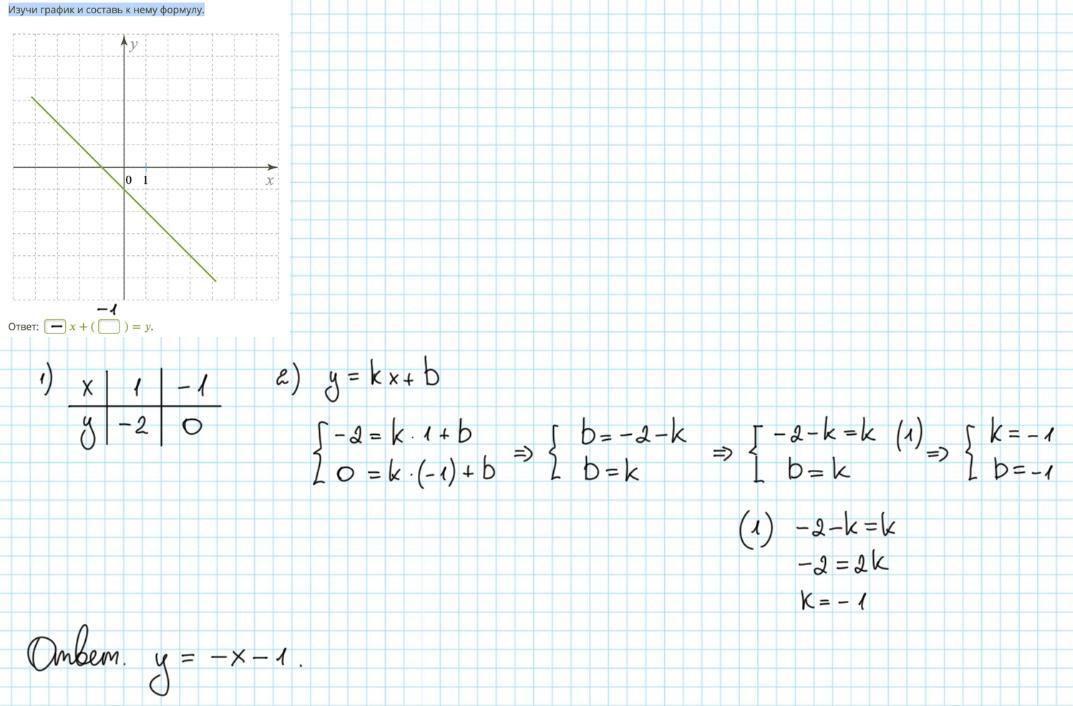 Изучи график и составь к нему формулу.
y
0 1
x
-1
Ответ: - x + ( ) = y.
1) x | 1 | -1
y | -2 | 0
2) y = kx + b
{ -2 = k · 1 + b ⇒ { b = -2 - k ⇒ [ -2 - k = k (1) ⇒ { k = -1
0 = k · (-1) + b b = k b = k b = -1
(1) -2 - k = k
-2 = 2k
k = -1
Ответ. y = -x - 1.